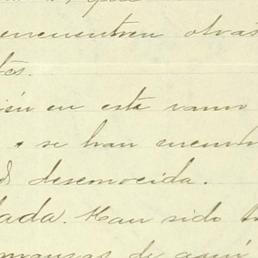 que
encuentren otras
tos.
bién en este ramo
se han encontr
desconocida.
lada. Han sido tr
de aquí